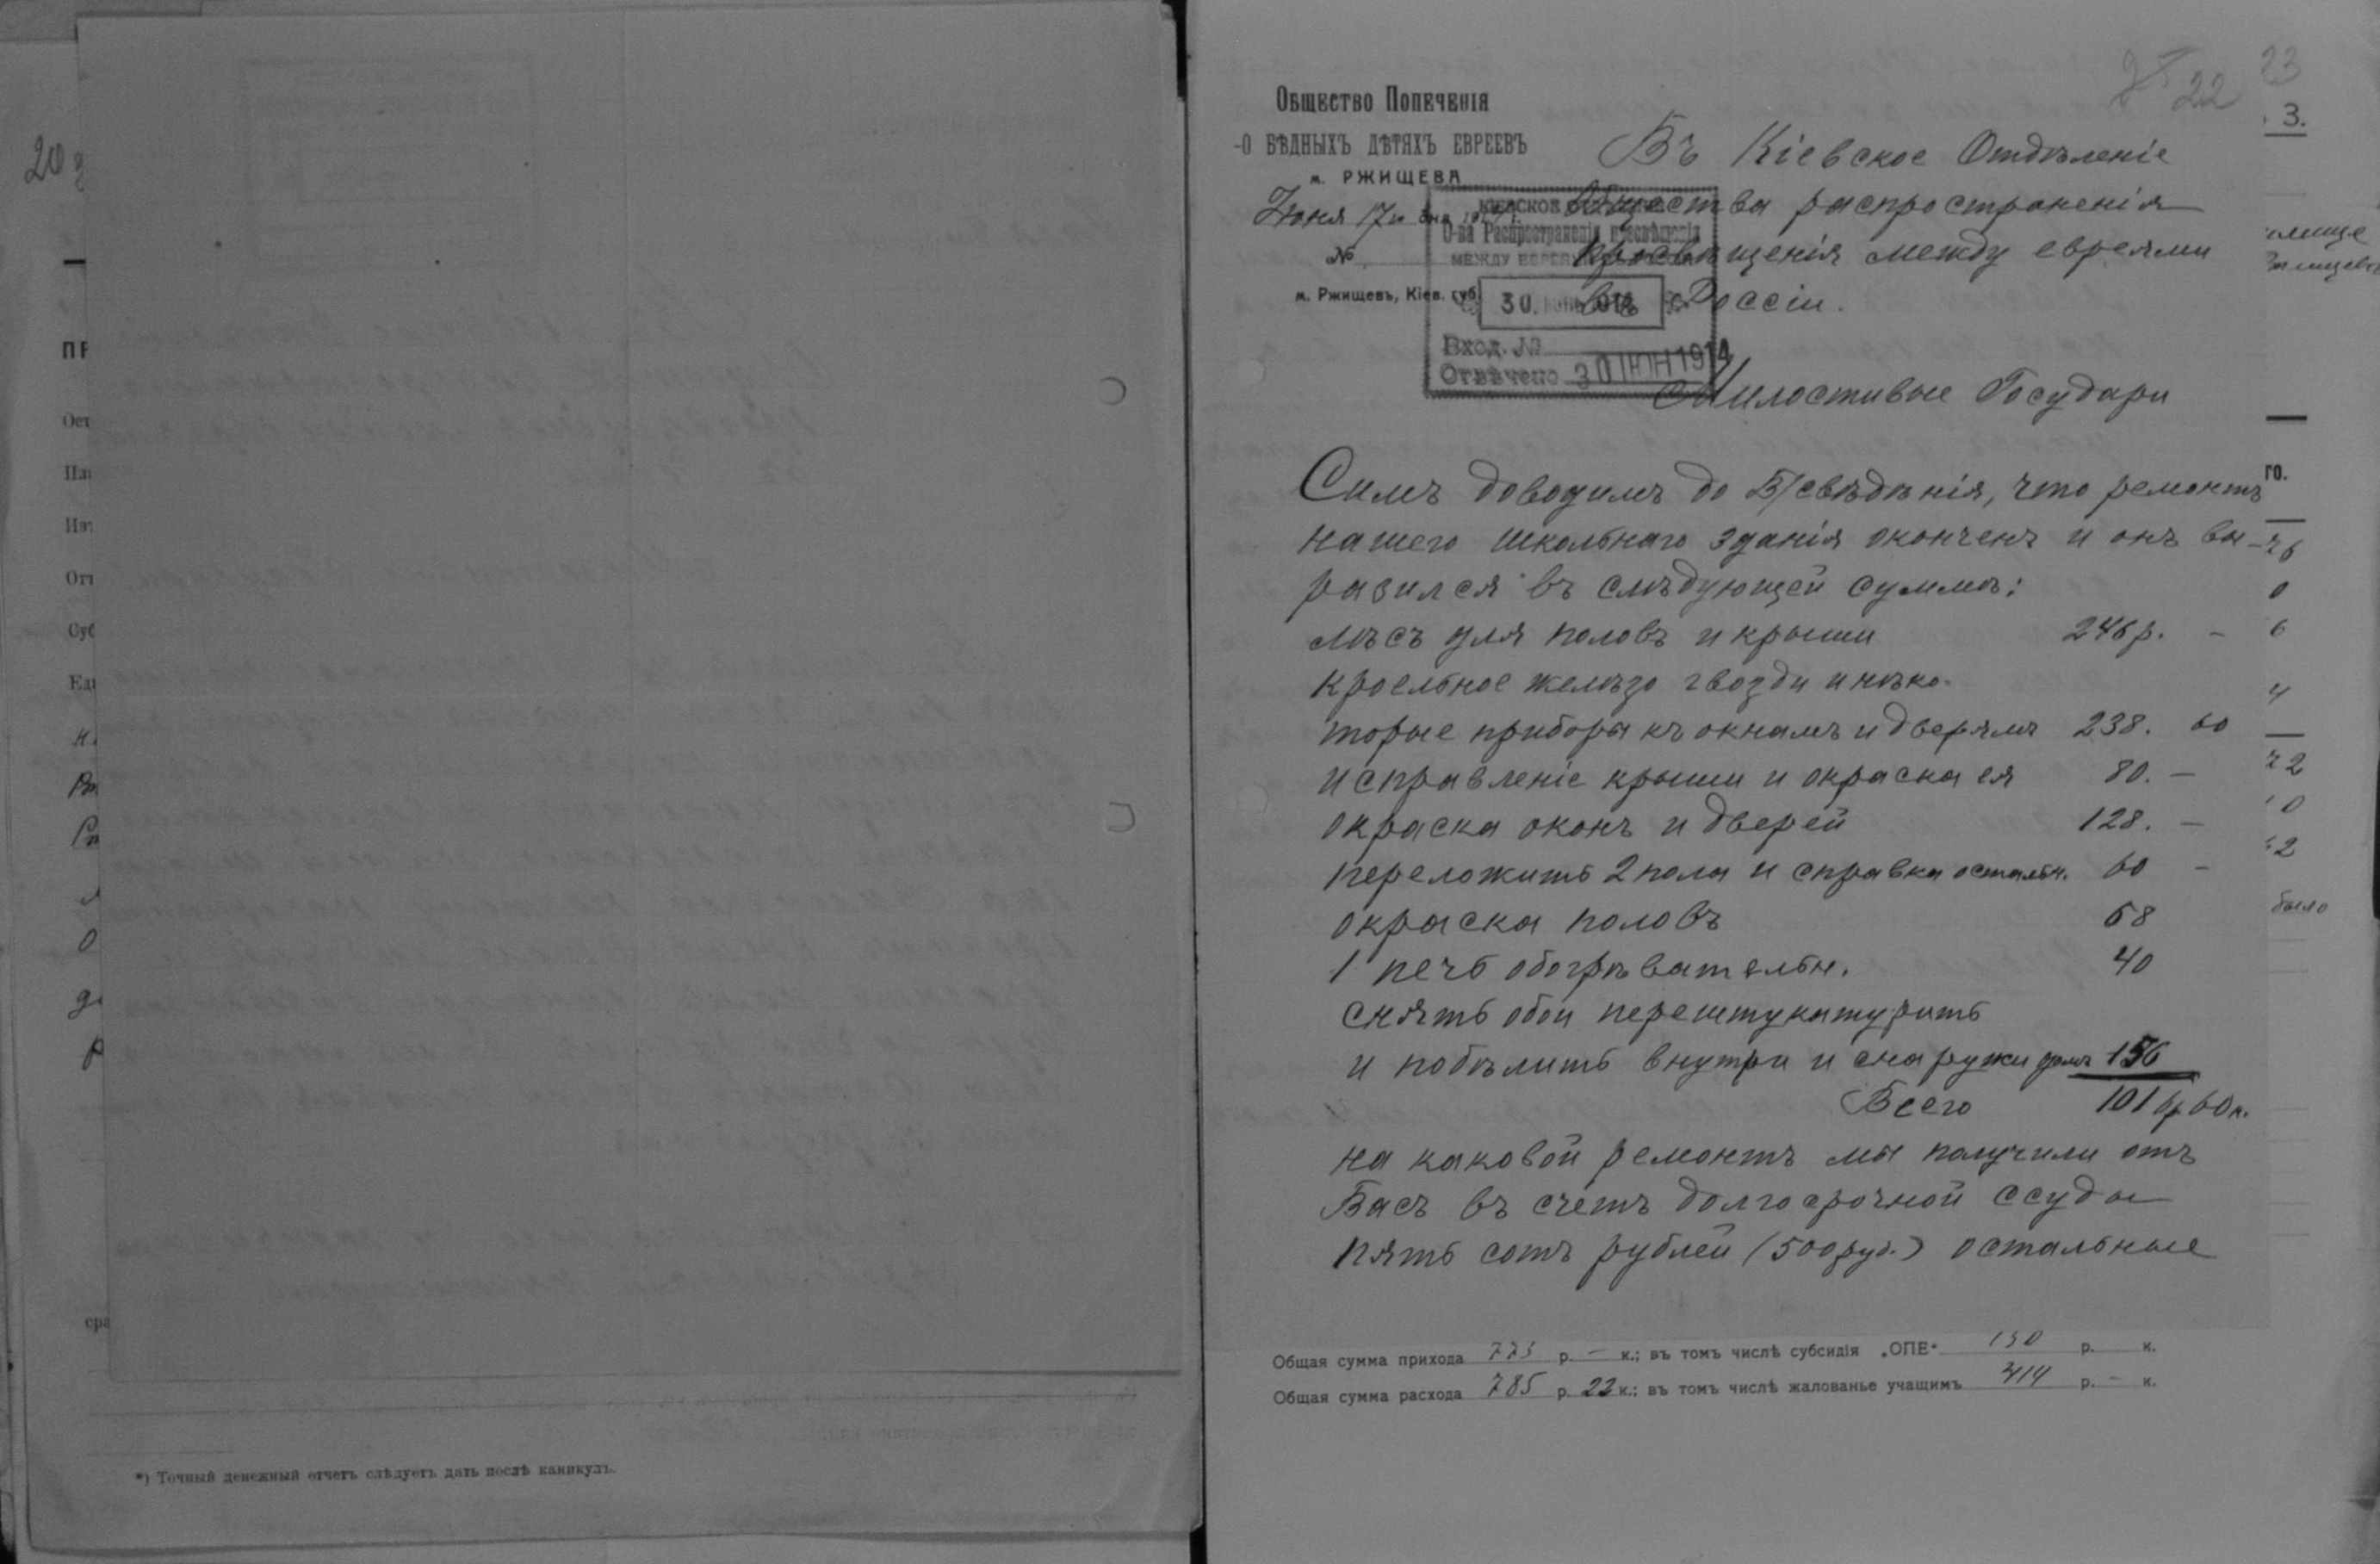 20
ПР
Ост
Пл
Из
От
Суб
Ед
сра
*) Точный денежный отчетъ слѣдуетъ дать послѣ каникулъ.
22
23
3.
Общество Попеченія
О БѢДНЫХЪ ДѢТЯХЪ ЕВРЕЕВЪ
м. РЖИЩЕВА
Іюня 17го дня 191
№
м. Ржищевъ, Кіев. губ.
КІЕВСКОЕ
О-ва Распространенія просвѣщенія
МЕЖДУ ЕВРЕЯМИ
30
Вход. №
Отвѣчено 30 ІЮН 1914
Въ Кіевское Отдѣленіе
Общества распространенія
просвѣщенія между евреями
въ Россіи.
Милостивые Государи
Симъ доводимъ до В/свѣдѣнія, что ремонтъ
нашего школьнаго зданія оконченъ и онъ вы-
разился въ слѣдующей суммѣ:
лѣсъ для половъ и крыши 246 р. –
кроельное желѣзо гвозди и нѣко-
торые приборы къ окнамъ и дверямъ 238. 60
исправленіе крыши и окраска ея 80. –
окраска оконъ и дверей 128. –
переложить 2 пола и справка остальн. 60 –
окраска половъ 68
1 печь обогрѣвательн. 40
снять обои перештукатурить
и побѣлить внутри и снаружи домъ 156
Всего 1016 р 60 к.
на каковой ремонтъ мы получили отъ
Васъ въ счетъ долгосрочной ссуды
пять сотъ рублей (500 руб.) остальные
го.
было
Общая сумма прихода 773 р. – к.; въ томъ числѣ субсидія „ОПЕ“ 150 р. к.
Общая сумма расхода 785 р. 22 к.; въ томъ числѣ жалованье учащимъ 414 р. – к.